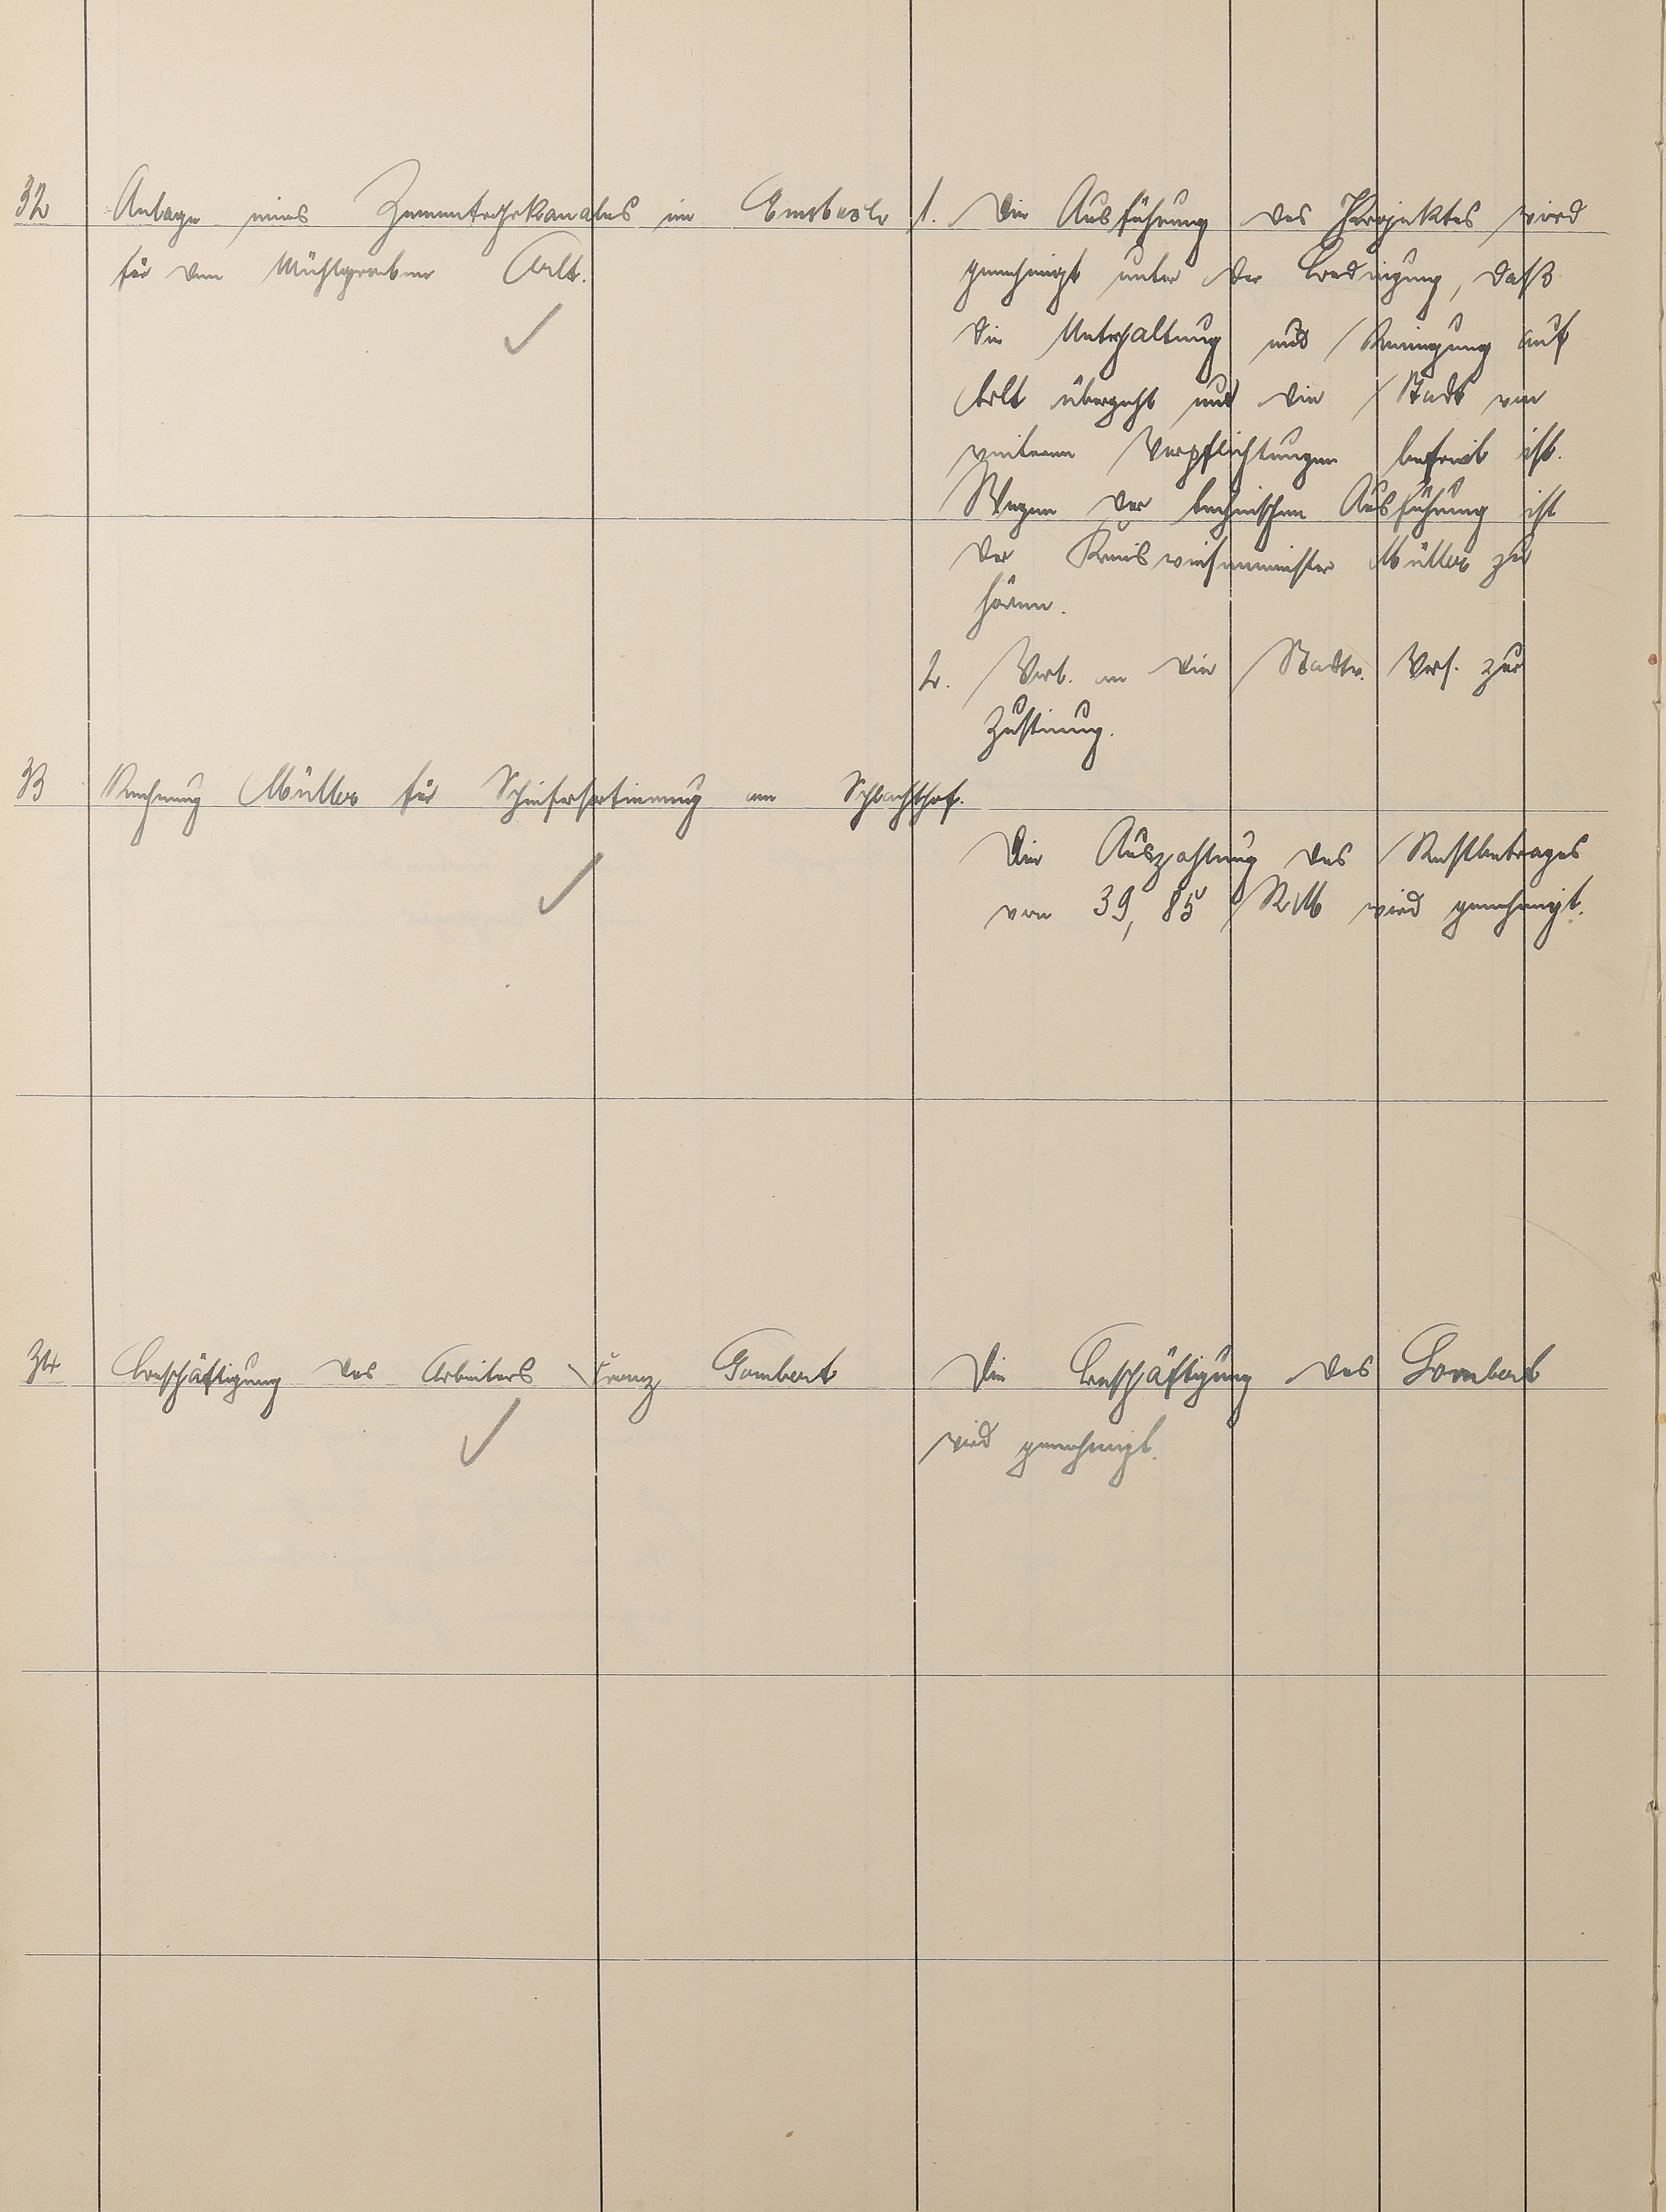 32 Anlage eines Zementrohrkanales im Emsbach
für den Mühlgraben Arlt.
1. Die Ausführung des Projektes wird
genehmigt unter der Bedingung, daß
die Unterhaltung und Reinigung auf
Arlt übergeht und die Stadt von
weiteren Verpflichtungen befreit ist.
Wegen der technischen Ausführung ist
der Kreiswiesenmeister Müller zu
hören.
2. Vorl. an die Stadtv. Vers. zur
Zustimmg.
33 Rechnung Müller für am Schlachthof.
Die Auszahlung des Restbetrages
von 39,85 RM wird genehmigt.
34 Beschäftigung des Arbeiters Franz Gombert
Die Beschäftigung des Gombert
wird genehmigt.